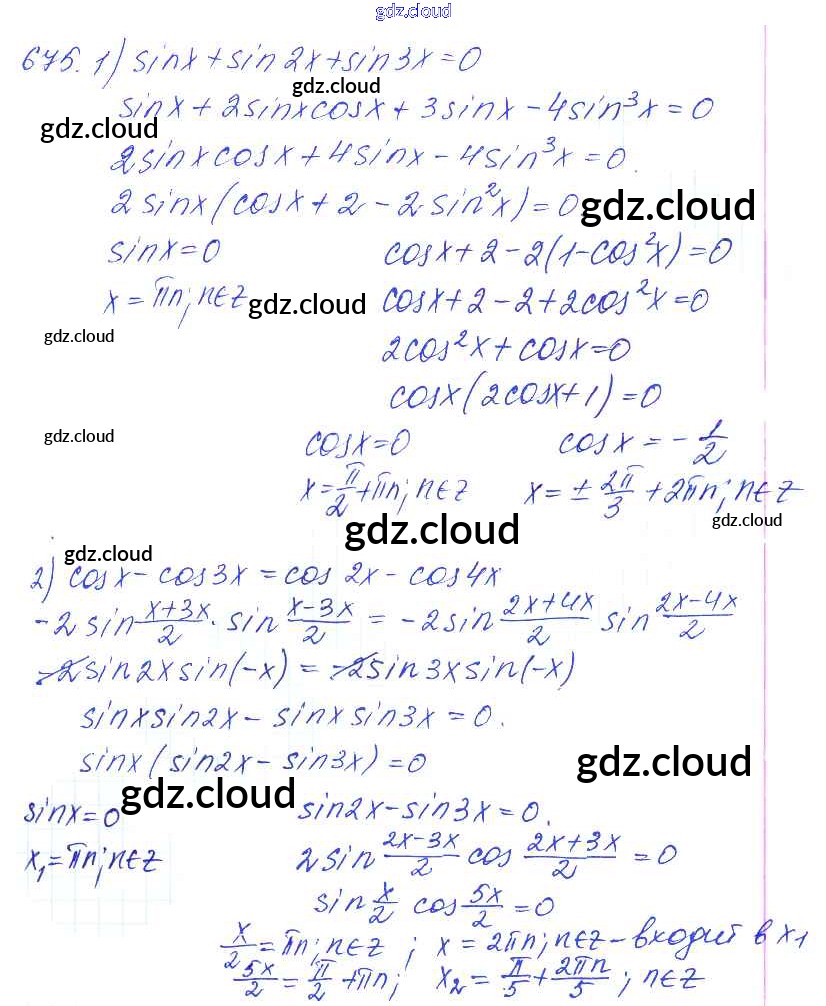 gdz.cloud
675. 1) sinx + sin 2x + sin 3x = 0
gdz.cloud
sinx + 2sinxcosx + 3sinx - 4sin³x = 0
gdz.cloud
2sinxcosx + 4sinx - 4sin³x = 0.
2sinx(cosx + 2 - 2sin²x) = 0 gdz.cloud
sinx = 0 cosx + 2 - 2(1-cos²x) = 0
x = πn; n∈Z gdz.cloud cosx + 2 - 2 + 2cos²x = 0
gdz.cloud 2cos²x + cosx = 0
cosx(2cosx+1) = 0
gdz.cloud cosx = 0 cosx = -1/2
x = π/2 + πn; n∈Z x = ± 2π/3 + 2πn; n∈Z
gdz.cloud gdz.cloud
gdz.cloud
2) cosx - cos3x = cos 2x - cos4x
-2 sin (x+3x)/2 · sin (x-3x)/2 = -2sin (2x+4x)/2 sin (2x-4x)/2
-2sin2x sin(-x) = -2sin3x sin(-x)
sinx sin2x - sinx sin3x = 0.
sinx(sin2x - sin3x) = 0 gdz.cloud
gdz.cloud
sinx = 0 sin2x - sin3x = 0.
x₁ = πn; n∈Z 2sin (2x-3x)/2 cos (2x+3x)/2 = 0
sin x/2 cos 5x/2 = 0
x/2 = πn; n∈Z ; x = 2πn; n∈Z - входит в x₁
5x/2 = π/2 + πn; x₂ = π/5 + 2πn/5 ; n∈Z